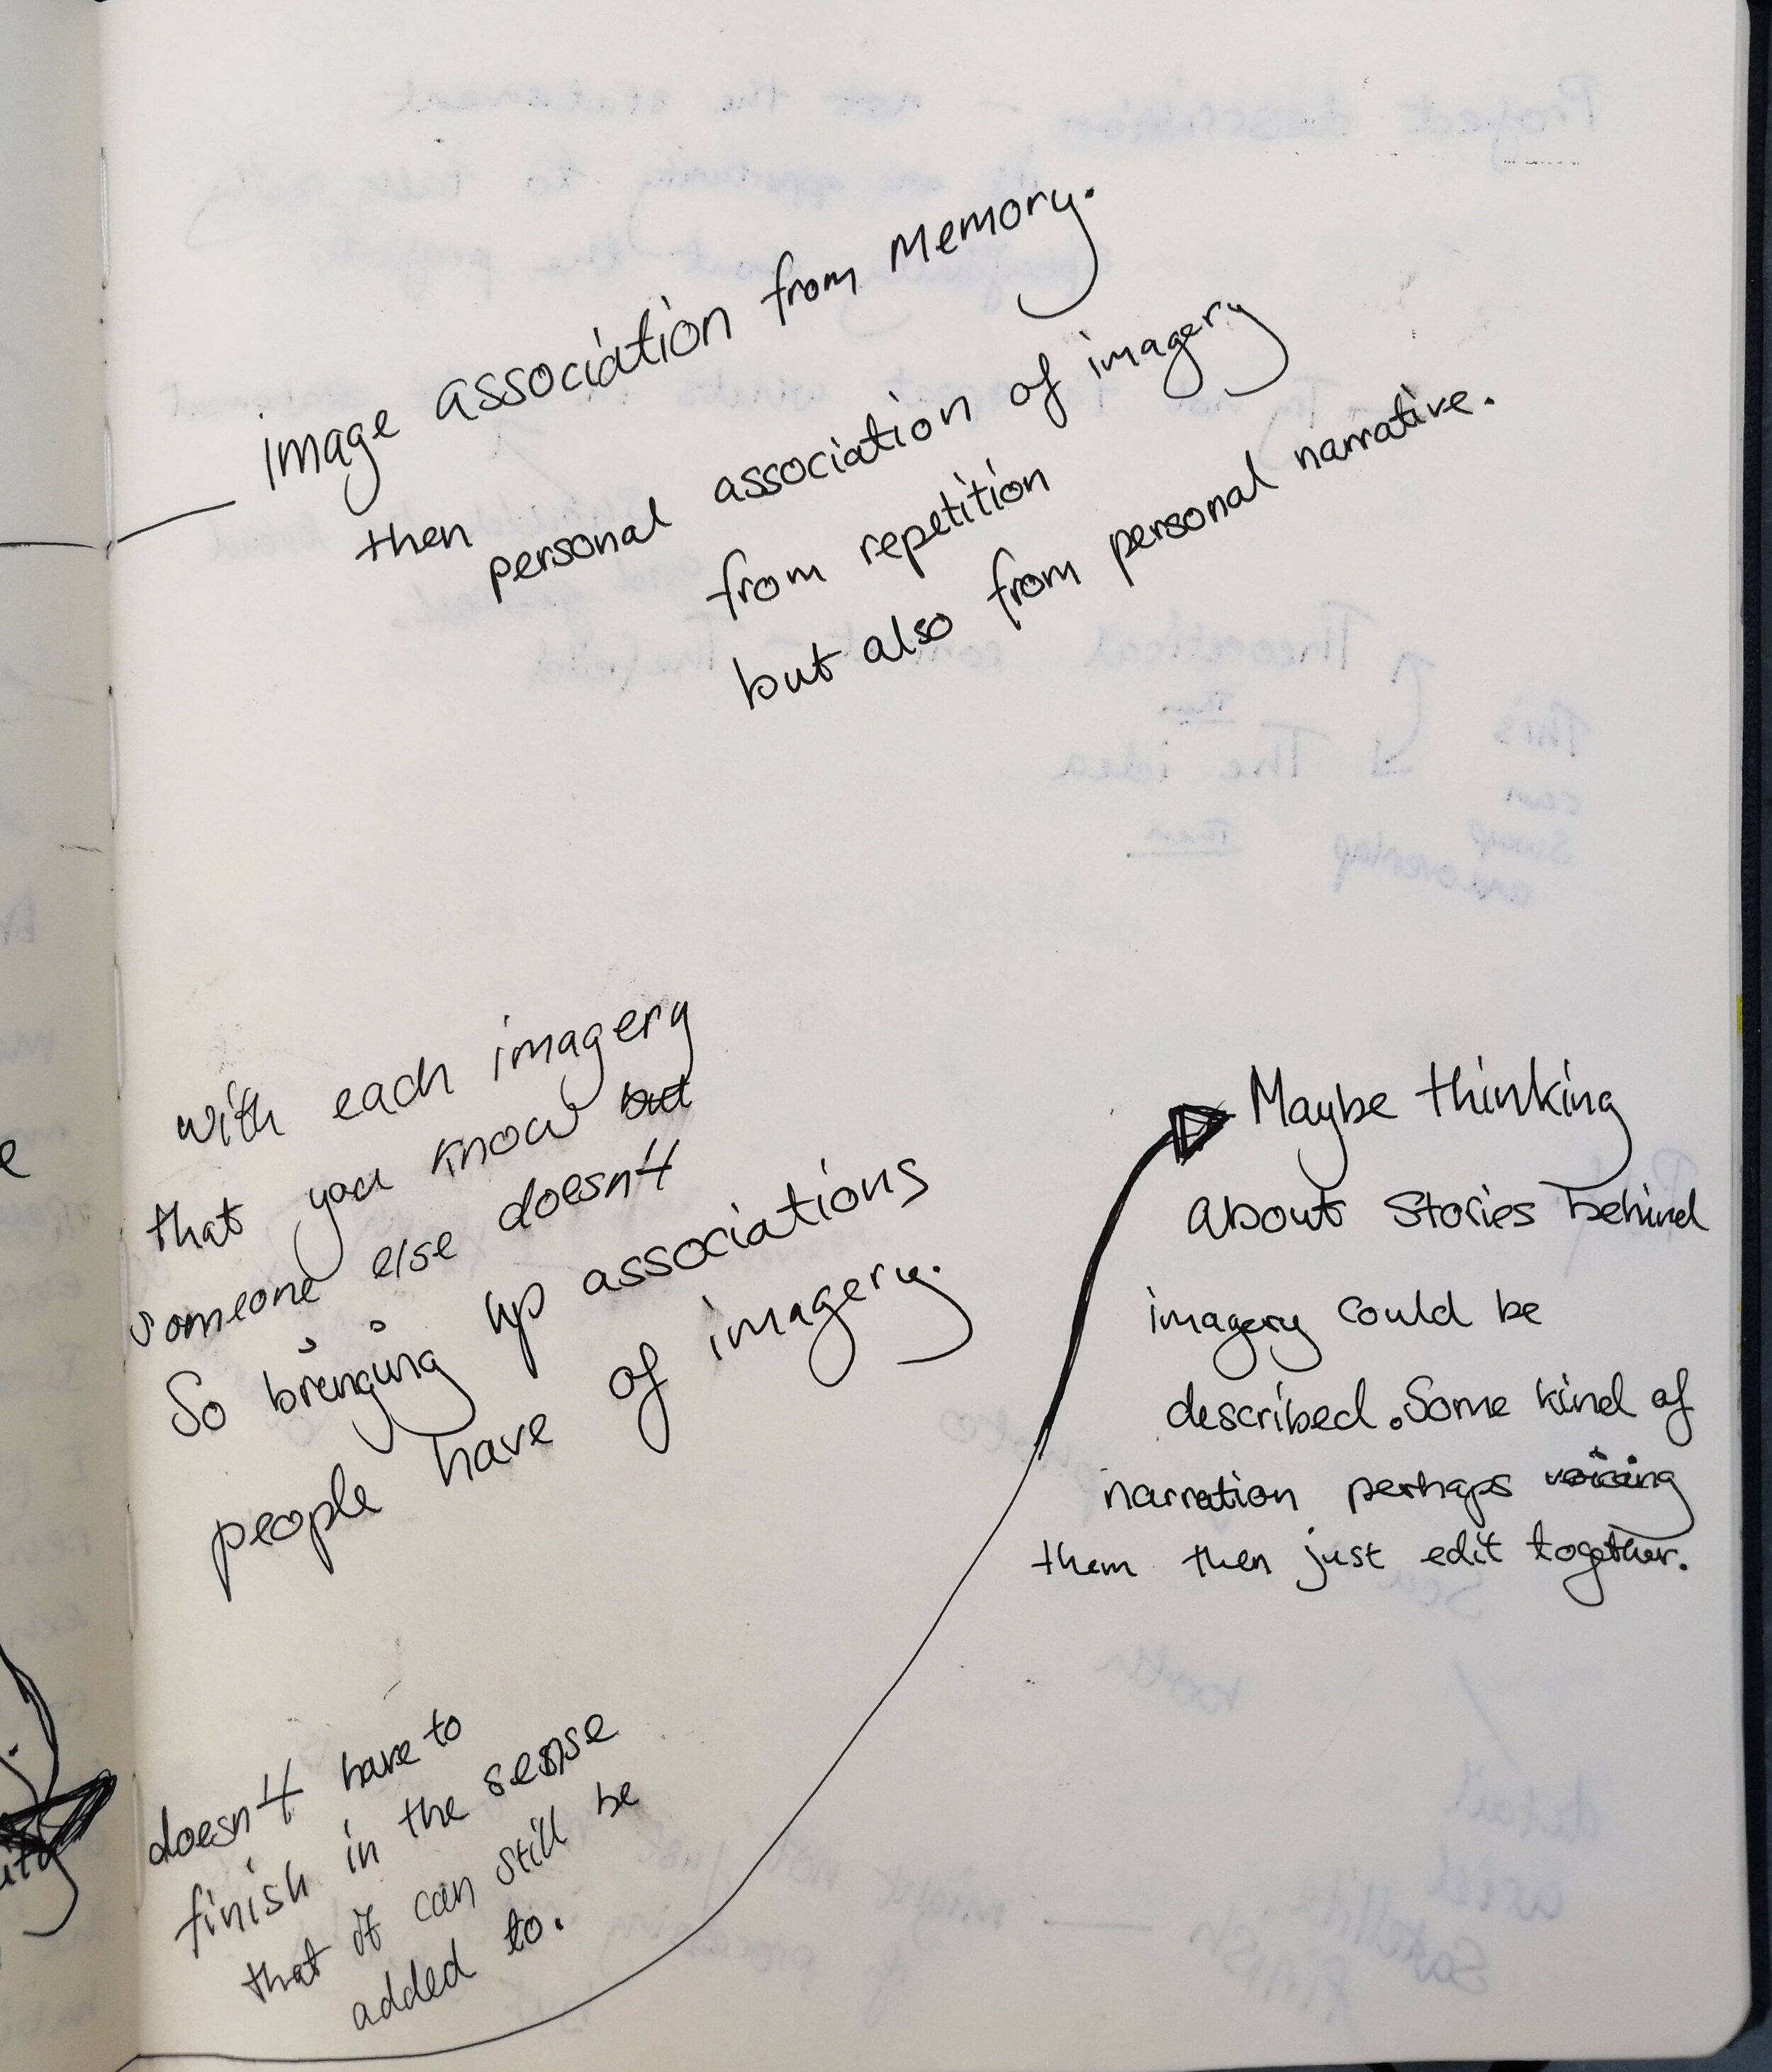 image association from memory.
then
personal association of imagery
from repetition
but also from personal narrative.
with each imagery
that you know but
someone else doesn't
So bringing up associations
people have of imagery.
Maybe thinking
about stories behind
imagery could be
described. Some kind of
narration perhaps voicing
them then just edit together.
doesn't have to
finish in the sense
that it can still be
added to.